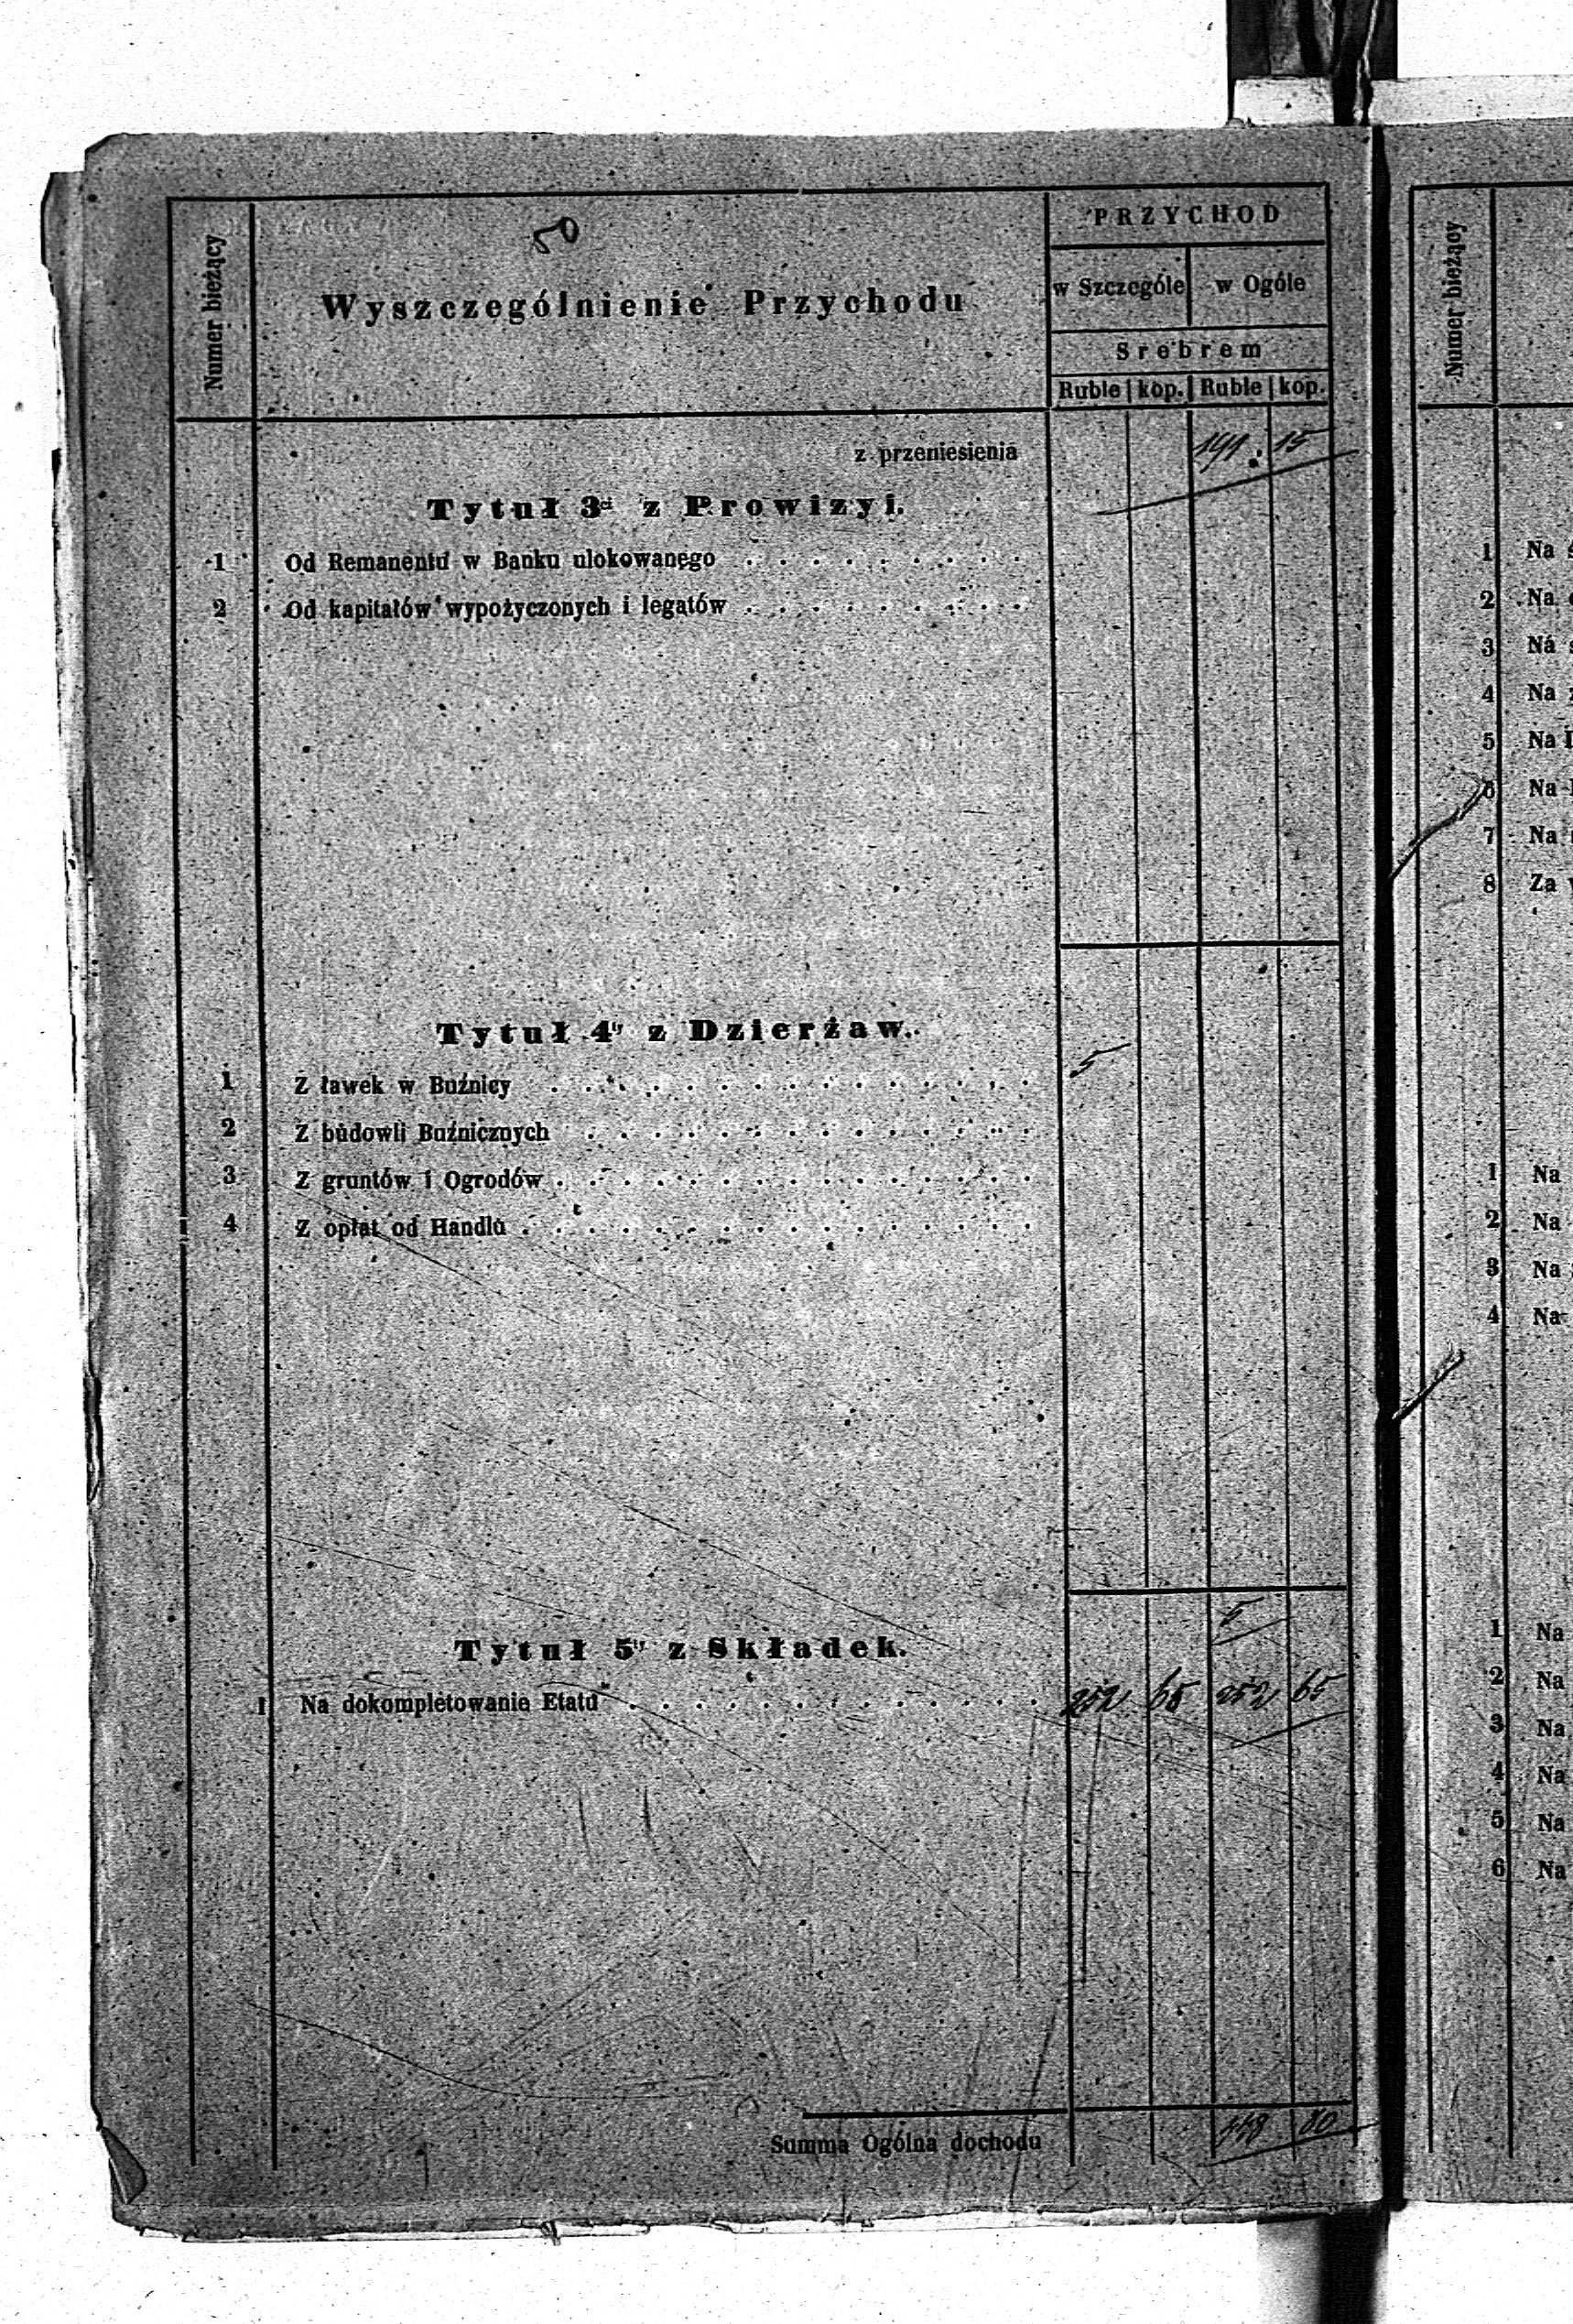 50
Numer bieżący
Wyszczególnienie Przychodu
PRZYCHOD
w Szczególe w Ogóle
Srebrem
Ruble kop. Ruble kop.
z przeniesienia 191 : 15
Tytuł 3ci z Prowizyi.
1 Od Remanentu w Banku ulokowanego . . . . . . . . .
2 Od kapitałów wypożyczonych i legatów . . . . . . . . .
Tytuł 4ty z Dzierżaw.
1 Z ławek w Buźnicy . . . . . . . . . . . . . . . 5
2 Z budowli Buźnicznych . . . . . . . . . . . . . .
3 Z gruntów i Ogrodów . . . . . . . . . . . . . . .
4 Z opłat od Handlu . . . . . . . . . . . . . . . .
5
Tytuł 5ty z Składek.
1 Na dokompletowanie Etatu . . . . . . . . . . . . . 252 65 252 65
Summa Ogólna dochodu 448 80
Numer bieżący
1 Na
2 Na
3 Na
4 Na
5 Na
6 Na
7 Na
8 Za
1 Na
2 Na
3 Na
4 Na
1 Na
2 Na
3 Na
4 Na
5 Na
6 Na